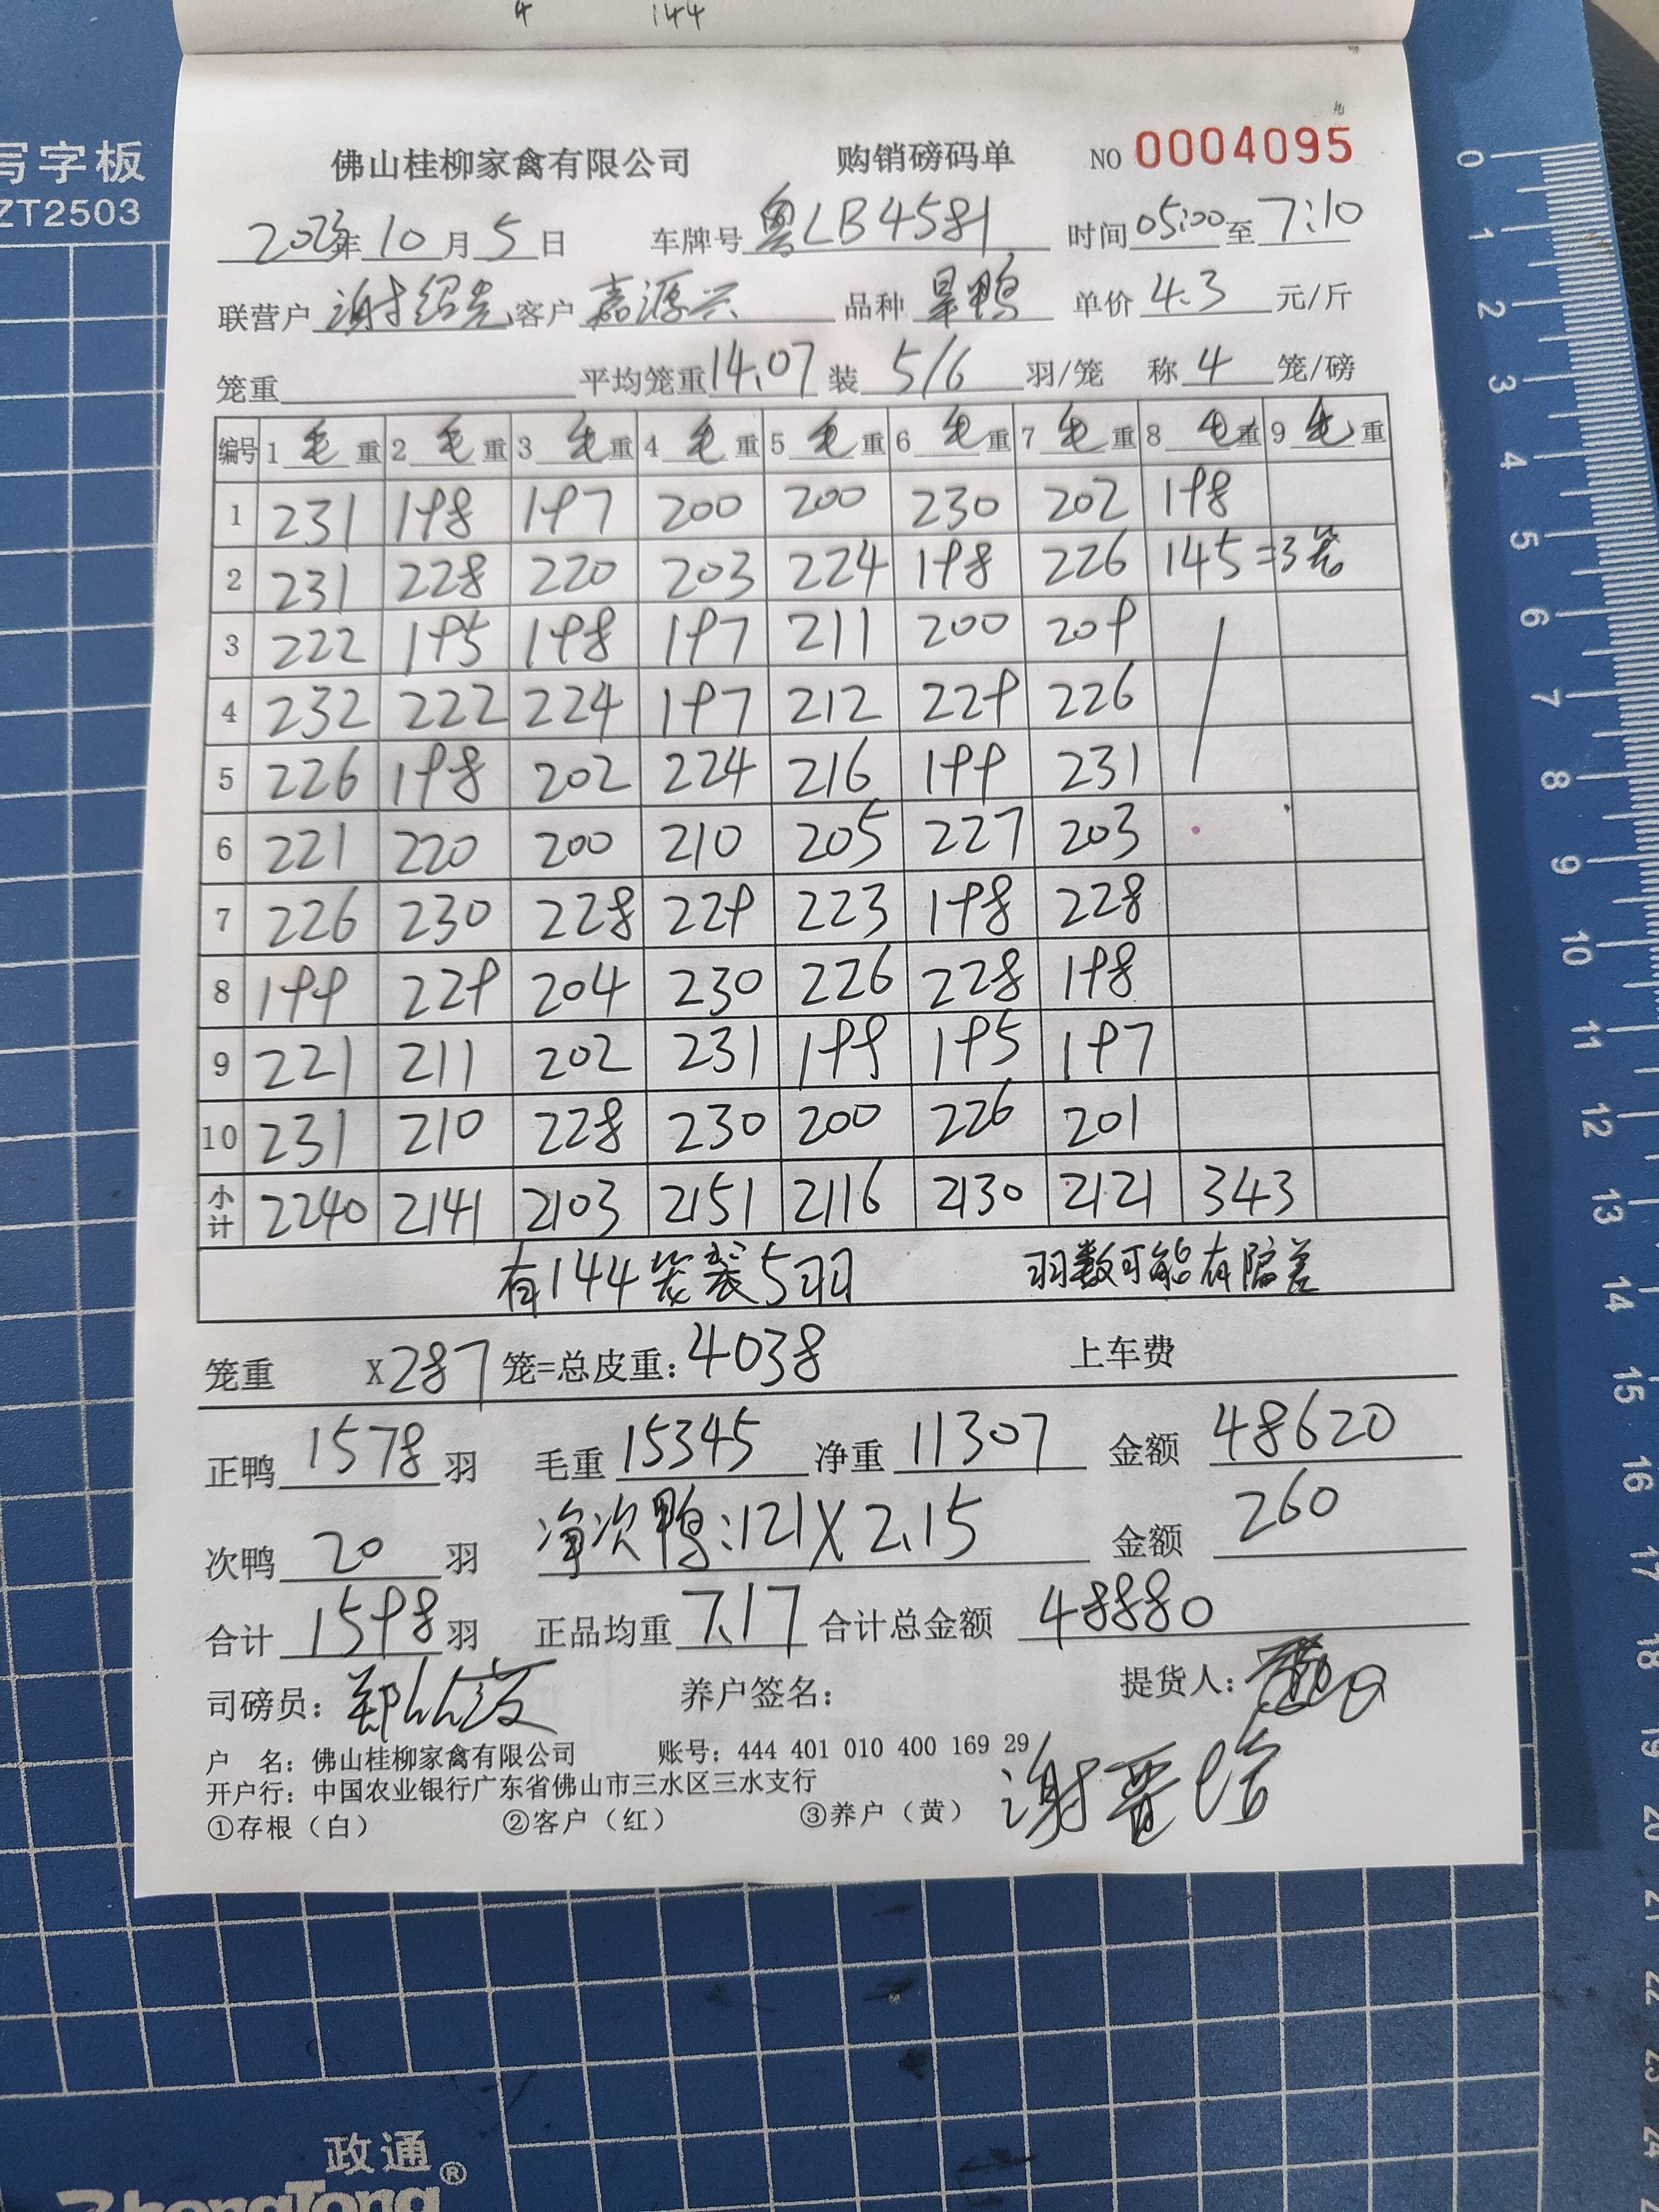 4 144
写字板
ZT2503
佛山桂柳家禽有限公司 购销磅码单 NO 0004095
2023年10月5日 车牌号 粤LB4581 时间 05:00 至 7:10
联营户 谢绍光 客户 嘉源兴 品种 旱鸭 单价 4.3 元/斤
笼重 平均笼重 14.07 装 5/6 羽/笼 称 4 笼/磅
编号 1 毛 重 2 毛 重 3 毛 重 4 毛 重 5 毛 重 6 毛 重 7 毛 重 8 毛 重 9 毛 重
1 231 198 197 200 200 230 202 198
2 231 228 220 203 224 198 226 145=3笼
3 222 195 198 197 211 200 209
4 232 222 224 197 212 229 226
5 226 198 202 224 216 199 231
6 221 220 200 210 205 227 203
7 226 230 228 229 223 198 228
8 199 229 204 230 226 228 198
9 221 211 202 231 199 195 197
10 231 210 228 230 200 226 201
小计 2240 2141 2103 2151 2116 2130 2121 343
有144笼装5羽 羽数可能有偏差
笼重 X287 笼=总皮重:4038 上车费
正鸭 1578 羽 毛重 15345 净重 11307 金额 48620
次鸭 20 羽 净次鸭:121X2.15 金额 260
合计 1598 羽 正品均重 7.17 合计总金额 48880
司磅员: 养户签名: 提货人:
户 名: 佛山桂柳家禽有限公司 账号: 444 401 010 400 169 29
开户行: 中国农业银行广东省佛山市三水区三水支行
①存根(白) ②客户(红) ③养户(黄)
0 1 2 3 4 5 6 7 8 9 10 11 12 13 14 15 16 17 18 19 20 21 22 23 24
政通®
ZhengTong